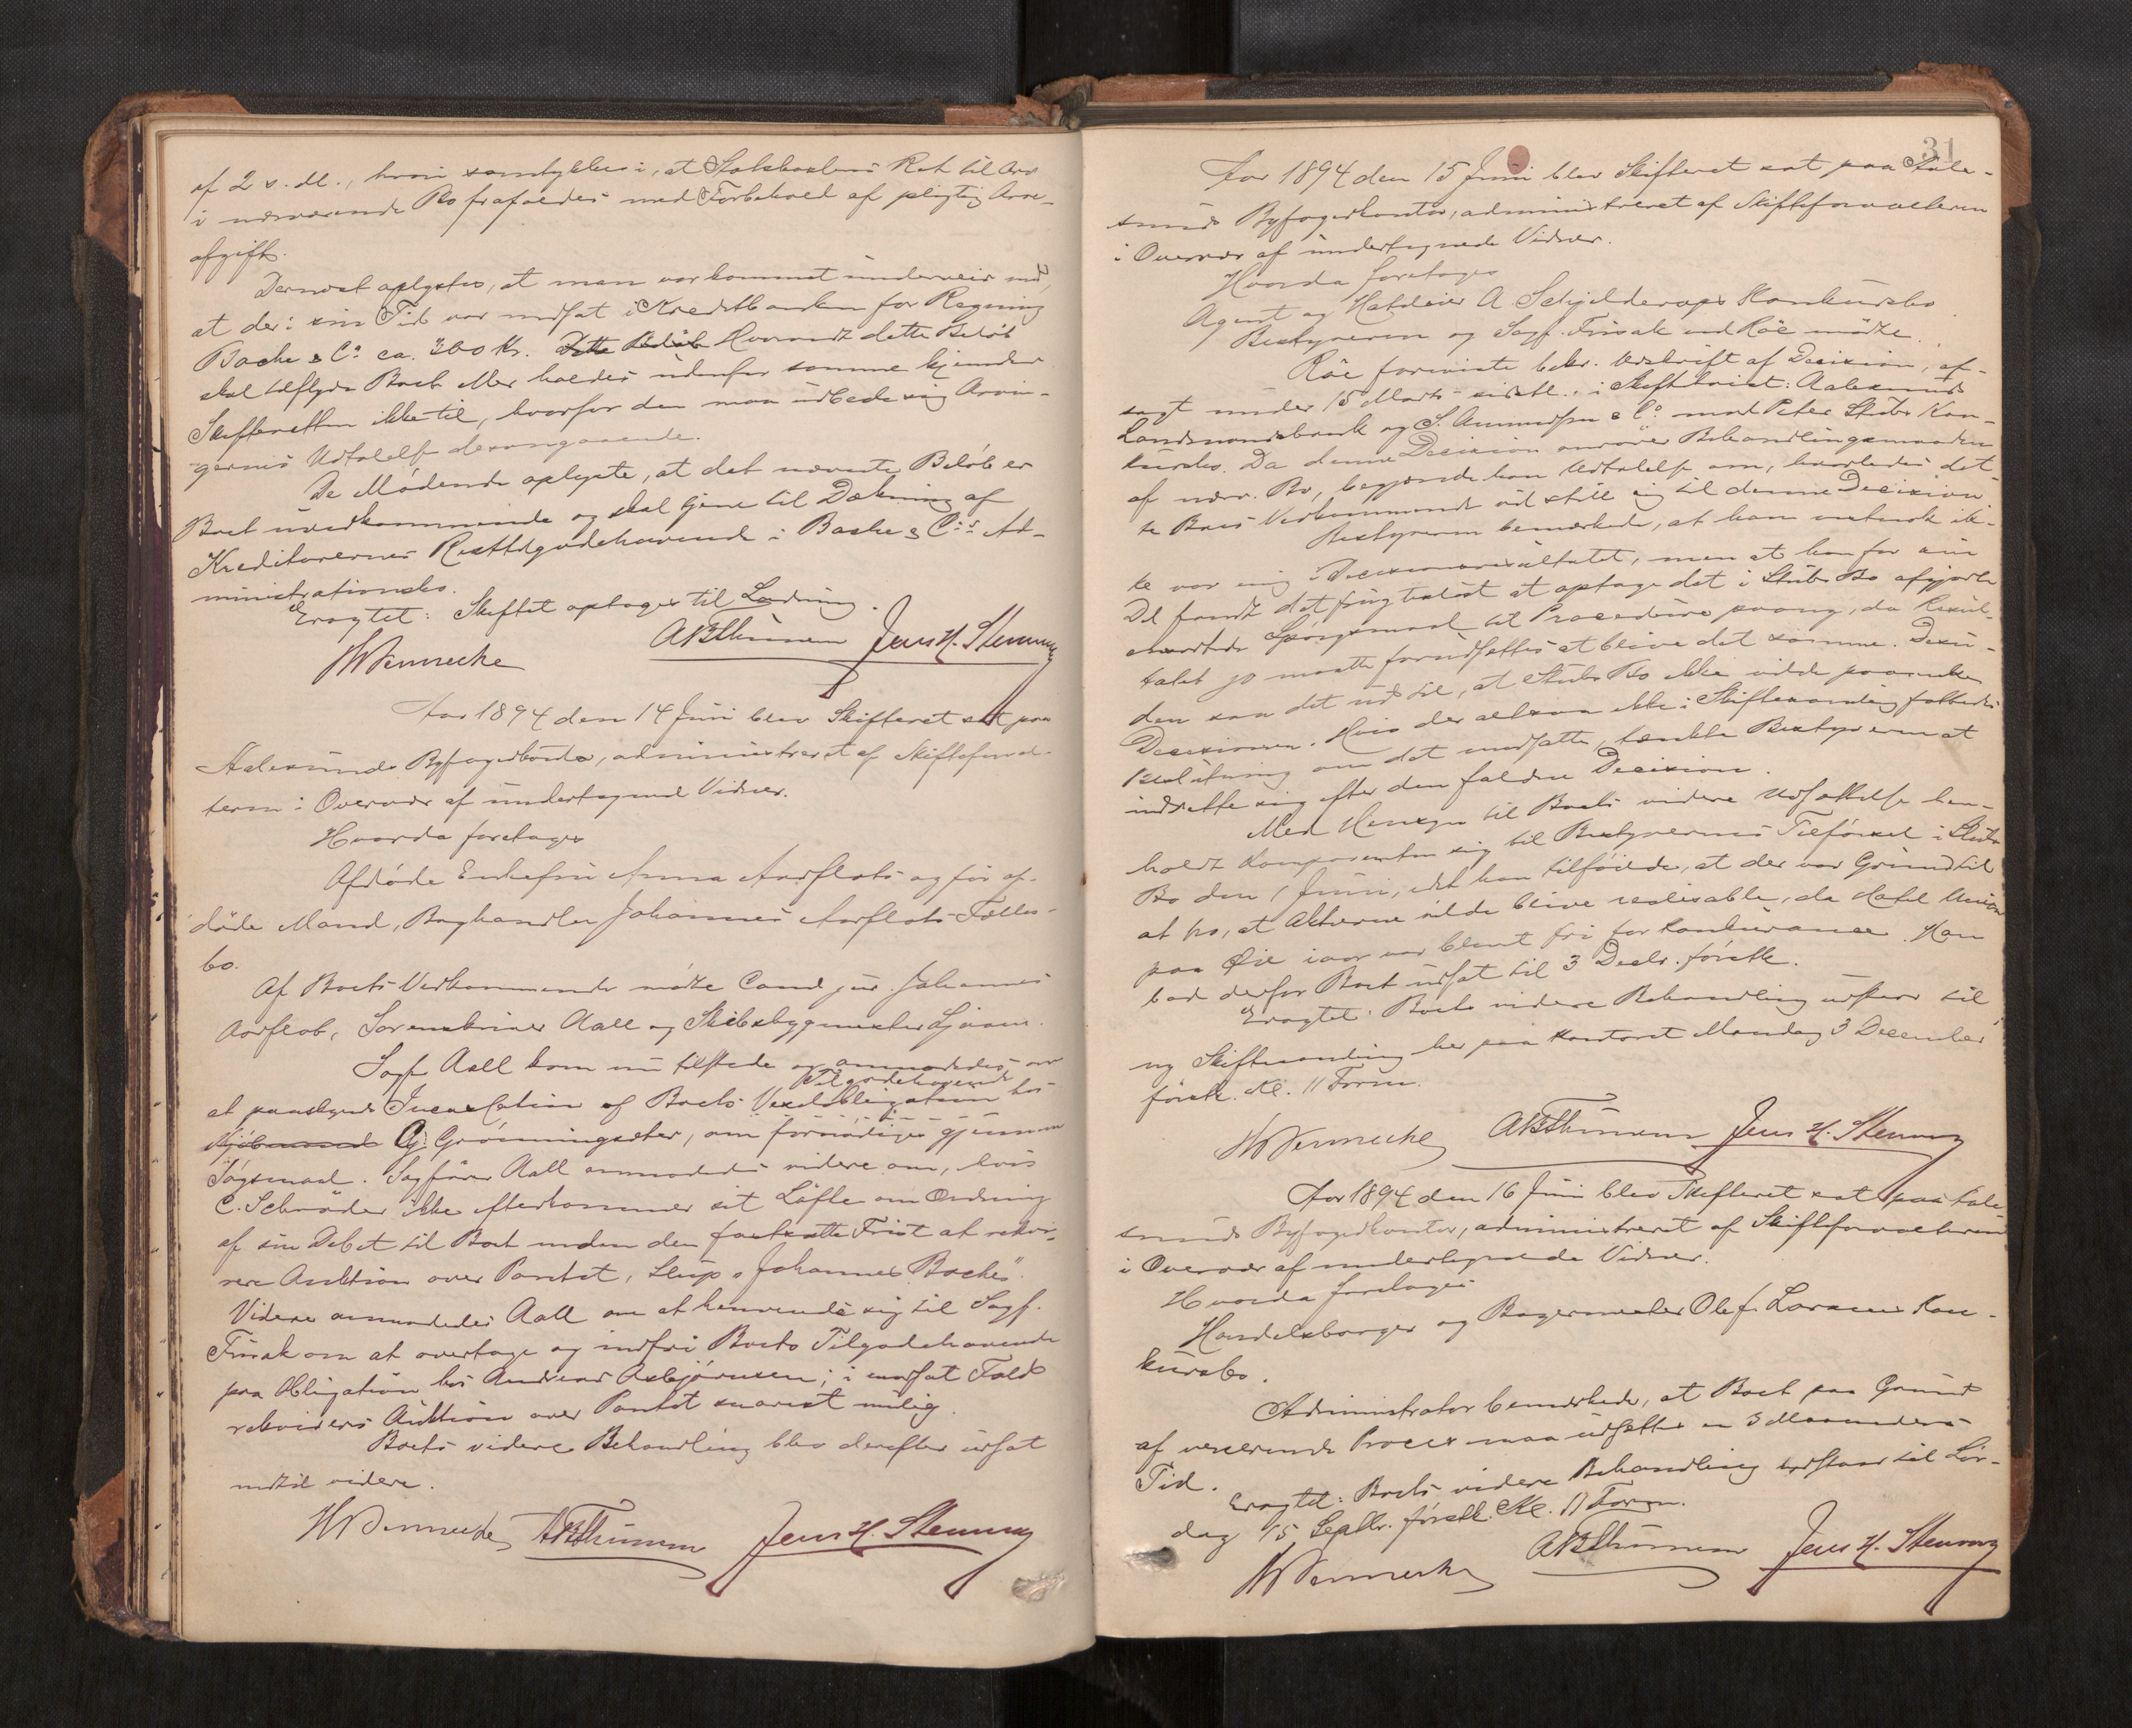 af 2 s. M., hvori samtykkes i, at Statskassens Ret til Arv
i nærværende Bo frafaldes med Forbehold af pligtig Arve-
afgift.
Dernæst oplystes, at man var kommet underveir med,
at der i sin Tid var indsat i Kreditbanken for Regning
Backe & Co ca. 300 Kr. Dette Beløb Hvorvidt dette Beløb
skal tilflyde Boet eller holdes udenfor samme kjender
Skifteretten ikke til, hvorfor den maa udbede sig Arvin-
gernes Udtalelse desangaaende.
De Mødende oplyste, at det nævnte Beløb er
Boet uvedkommende og skal tjene til Dækning af
Kreditorernes Resttilgodehavende i Backe & Co's Ad-
ministrationsbo.
Eragtet: Skiftet optages til Lodning.
HWennecke ABThunem Jens H. Stenvaag
Aar 1894 den 14 Juni blev Skifteret sat paa
Aalesunds Byfogedkontor, administreret af Skifteforval-
teren i Overvær af undertegnede Vidner.
Hvorda foretoges
Afdøde Enkefru Anna Aarflots og før af-
døde Mand, Boghandler Johannes Aarflots Fælles-
bo.
Af Boets Vedkommende mødte Cand. jur. Johannes
Aarflot, Sorenskriver Aall og Skibsbygmester Liaaen.
Sagf. Aall kom nu tilstede og anmodedes om
at paaskynde Incassation af Boets Vexelobligation Tilgodehavende hos
Kjøbmand Gj. Grønningsæter, om fornødiges gjennem
Søgsmaal. Sagfører Aall anmodedes videre om, hvis
C. Schrøder ikke efterkommer sit Løfte om Ordning
af sin Debet til Boet inden den fastsatte Frist at rekvi-
rere Auktion over Pantet, Slup "Johannes Backe".
Videre anmodedes Aall om at henvende sig til Sagf.
Frisak om at overtage og indfri Boets Tilgodehavende
paa Obligation hos Andreas Asbjørnsen; i modsat Fald
rekvireres Auktion over Pantet snarest mulig.
Boets videre Behandling blev derefter udsat
indtil videre.
HWennecke ABThunem Jens H. Stenvaag
31
Aar 1894 den 15 Juni blev Skifteret sat paa Aale-
sunds Byfogedkontor, administreret af Skifteforvalteren
i Overvær af undertegnede Vidner.
Hvorda foretoges
Agent og Hoteleier A. Schjelderups Konkursbo.
Bestyreren og Sagf. Frisak ved Röe mødte.
Röe fremviste bekr. Udskrift af Decision, af-
sagt under 15 Marts sidstl. i Skiftetvist: Aalesunds
Landmandsbank og S. Amundsen & Co mod Peter Stubs Kon-
kursbo. Da denne Decision omrører Behandlingsmaaden
af nærv. Bo, begjærede han Udtalelse om, hvorledes det-
te Boes Vedkommende vil stille sig til denne Decision.
Bestyreren bemærkede, at han vistnok ik-
ke var enig i Decisionsresultatet, men at han for sin
Del fandt det frugtesløst at optage det i Stubs Bo afgjorte
omtvistede Spørgsmaal til Procedure paany, da Resul-
tatet jo maatte forudsættes at blive det samme. Desu-
den saa det ud til, at Stubs Bo ikke vilde paaanke
Decisionen. Hvis der altsaa ikke i Skiftesamling fattedes
Beslutning om det modsatte, tænkte Bestyreren at
indrette sig efter den faldne Decision.
Med Hensyn til Boets videre Udsættelse hen-
holdt Komparenten sig til Bestyrerens Tilførsel i Stubs
Bo den 1 Juni, idet han tilføiede, at der var Grund til
at tro, at Aktierne vilde blive realisable, da Hotel Union
paa Øie iaar var blevet fri for Konkurrance. Han
bad derfor Boet udsat til 3 Decbr. førstk.
Eragtet: Boets videre Behandling udstaar til
ny Skiftesamling her paa Kontoret Mandag 3 December
førstk. Kl. 11 Form.
HWennecke ABThunem Jens H. Stenvaag
Aar 1894 den 16 Juni blev Skifteret sat paa Aale-
sunds Byfogedkontor, administreret af Skifteforvalteren
i Overvær af undertegnede Vidner.
Hvorda foretoges
Handelsborger og Bagermester Olaf Larsens Kon-
kursbo.
Administrator bemærkede, at Boet paa Grund
af verserende Proces maa udsættes en 3 Maaneders
Tid.
Eragtet: Boets videre Behandling udstaar til Lør-
dag 15 Septbr. førstk. Kl. 11 Form.
HWennecke ABThunem Jens H. Stenvaag